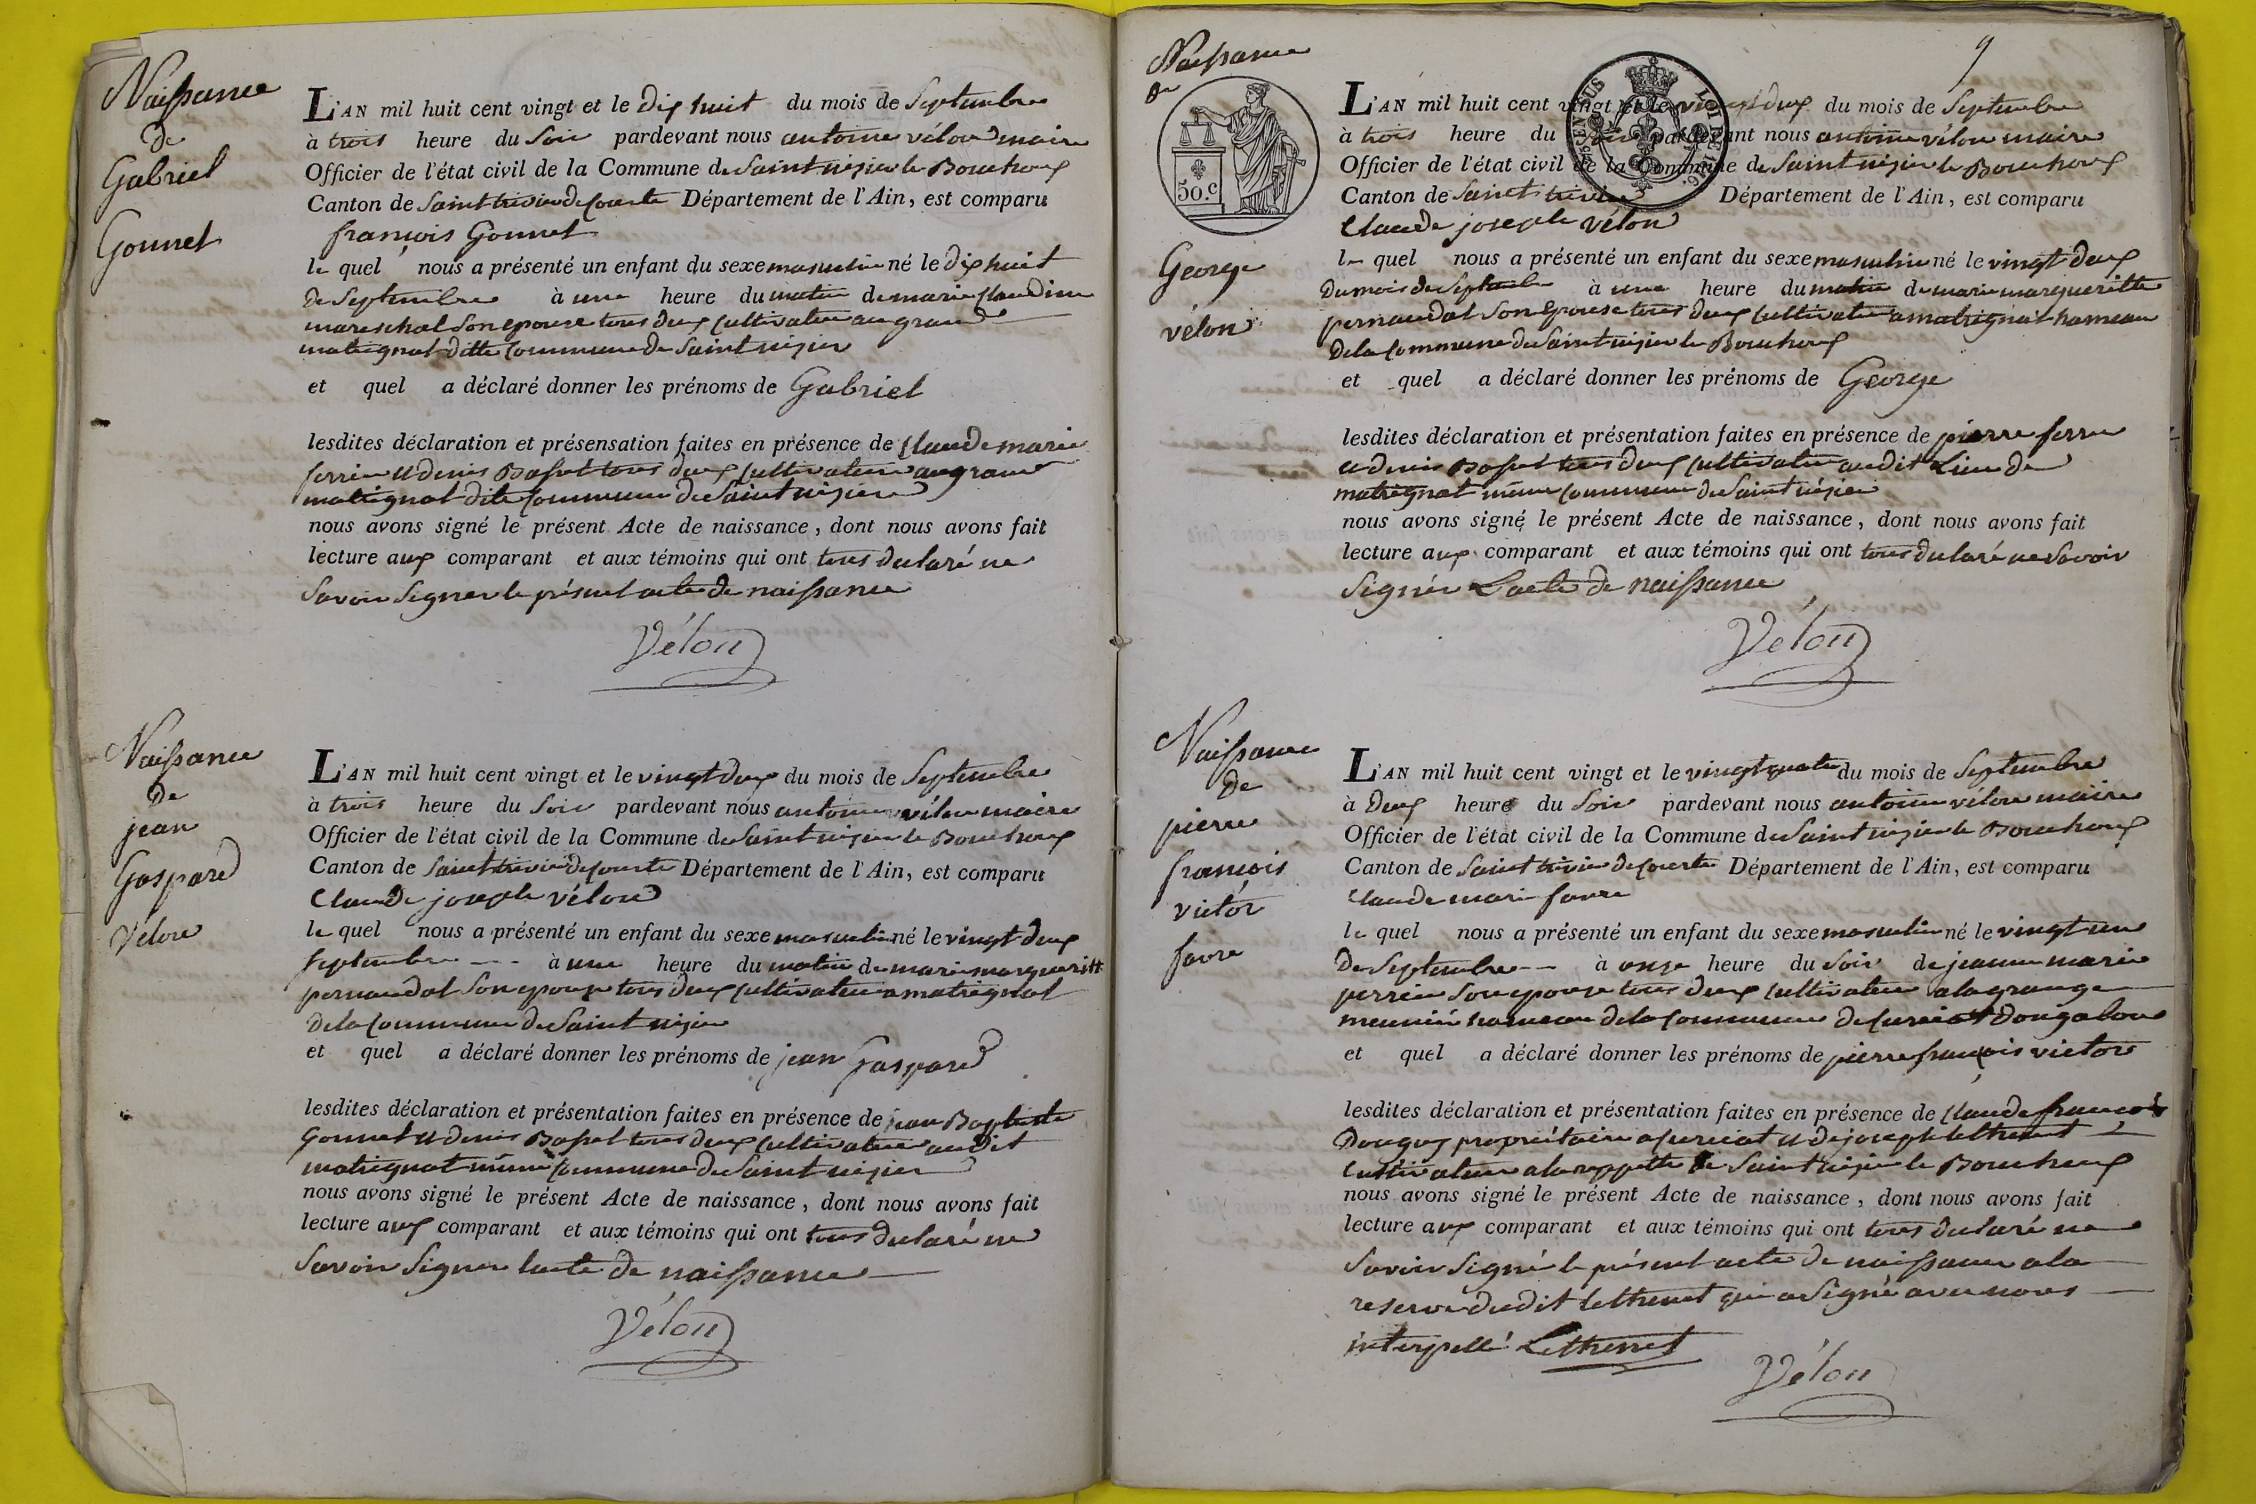 Naissance
de
Gabriel
Gonnet
L'AN mil huit cent vingt et le dix huit du mois de Septembre
à trois heure du Soir pardevant nous antoine vélon maire
Officier de l'état civil de la Commune de Saint nizier le Bouchoux
Canton de Saint trivier de Courte Département de l'Ain, est comparu
françois Gonnet
le quel nous a présenté un enfant du sexe masculin né le dix huit
de Septembre à une heure du matin de marie Claudine
mareschal Son epouse tous deux Cultivateur au grand
matrignat ditte Commune de Saint nizier
et quel a déclaré donner les prénoms de Gabriel
lesdites déclaration et présensation faites en présence de Claude marie
ferrier et denis Basset tous deux Cultivateur au grand
matrignat dite Commune de Saint nizier
nous avons signé le présent Acte de naissance, dont nous avons fait
lecture aux comparant et aux témoins qui ont tous declaré ne
Savoir Signer le présent acte de naissance
Vélon
Naissance
de
jean
Gaspard
Vélon
L'AN mil huit cent vingt et le vingt deux du mois de Septembre
à trois heure du Soir pardevant nous antoine vélon maire
Officier de l'état civil de la Commune de Saint nizier le Bouchoux
Canton de Saint trivier de Courte Département de l'Ain, est comparu
Claude joseph vélon
le quel nous a présenté un enfant du sexe masculin né le vingt deux
Septembre --- à une heure du matin de marie margueritte
pernaudat Son epouse tous deux Cultivateur a matrignat
de la Commune de Saint nizier
et quel a déclaré donner les prénoms de jean Gaspard
lesdites déclaration et présentation faites en présence de jean Baptiste
Gonnet et denis Basset tous deux Cultivateur audit
matrignat même Commune de Saint nizier
nous avons signé le présent Acte de naissance, dont nous avons fait
lecture aux comparant et aux témoins qui ont tous declaré ne
Savoir Signer lacte de naissance
Vélon
9
Naissance
de
50.c
George
vélon
L'AN mil huit cent vingt et le vingt deux du mois de Septembre
à trois heure du Soir pardevant nous antoine vélon maire
Officier de l'état civil de la Commune de Saint nizier le Bouchoux
Canton de Saint trivier Département de l'Ain, est comparu
Claude joseph vélon
le quel nous a présenté un enfant du sexe masculin né le vingt deux
du mois de Septembre à une heure du matin de marie margueritte
pernaudat Son Epouse tous deux Cultivateur a matrignat hameau
de la Commune de Saint nizier le Bouchoux
et quel a déclaré donner les prénoms de George
lesdites déclaration et présentation faites en présence de pierre
et denis Basset tous deux Cultivateur audit Lieu de
matrignat même Commune de Saint nizier
nous avons signé le présent Acte de naissance, dont nous avons fait
lecture aux comparant et aux témoins qui ont tous declaré ne Savoir
Signér Lacte de naissance
Vélon
Naissance
de
pierre
françois
victor
favre
L'AN mil huit cent vingt et le vingt quatre du mois de Septembre
à deux heure du Soir pardevant nous antoine vélon maire
Officier de l'état civil de la Commune de Saint nizier le Bouchoux
Canton de Saint trivier de Courte Département de l'Ain, est comparu
Claude mari favre
le quel nous a présenté un enfant du sexe masculin né le vingt une
de Septembre -- à onze heure du Soir de jeanne marie
perrin Son epouse tous deux Cultivateur a la grange
meunié hameau de la Commune de Curciat dongalon
et quel a déclaré donner les prénoms de pierre françois victor
lesdites déclaration et présentation faites en présence de Claude francois
propriétaire a Curciat et de joseph Lethenet
Cultivateur a la Saint nizier le Bouchoux
nous avons signé le présent Acte de naissance, dont nous avons fait
lecture aux comparant et aux témoins qui ont tous declaré ne
Savoir Signé le présent acte de naissance a la
reserve dudit Lethenet qui a Signé avec nous
interpellé Lethenet
Vélon